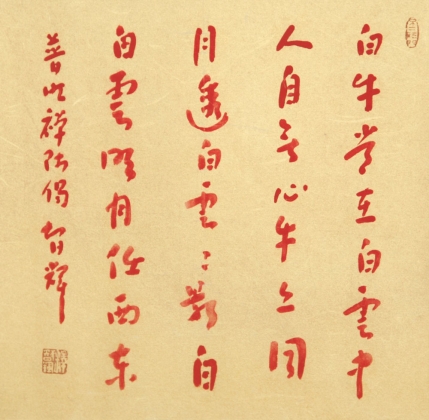 白牛常在白雲中
人自无心牛亦同
月透白雲〻影白
白雲明月任西东
普明禅师偈 智輝